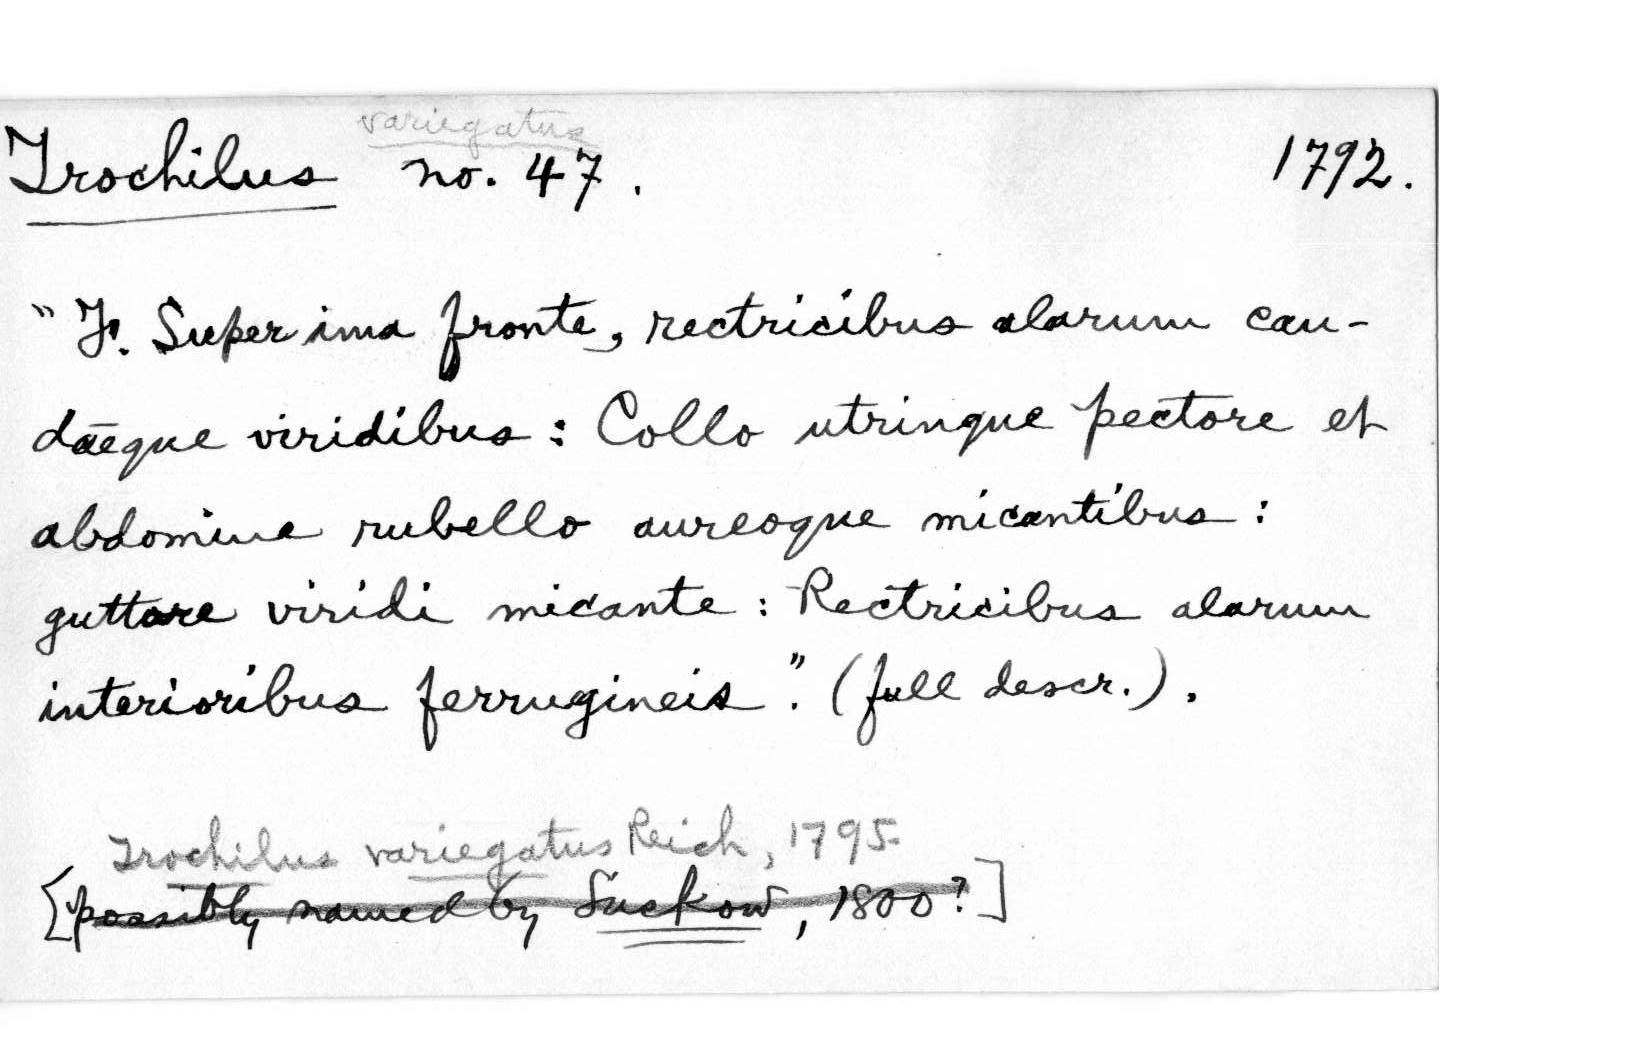 variegatus
Trochilus no. 47. 1792.
"T. Super ima fronte, rectricibus alarum cau-
dæque viridibus: Collo utrinque pectore et
abdomine rubello aureoque micantibus:
guttore viridi micante: Rectricibus alarum
interioribus ferrugineis." (full descr.).
Trochilus variegatus Reich, 1795
[possibly named by Suckow, 1800?]